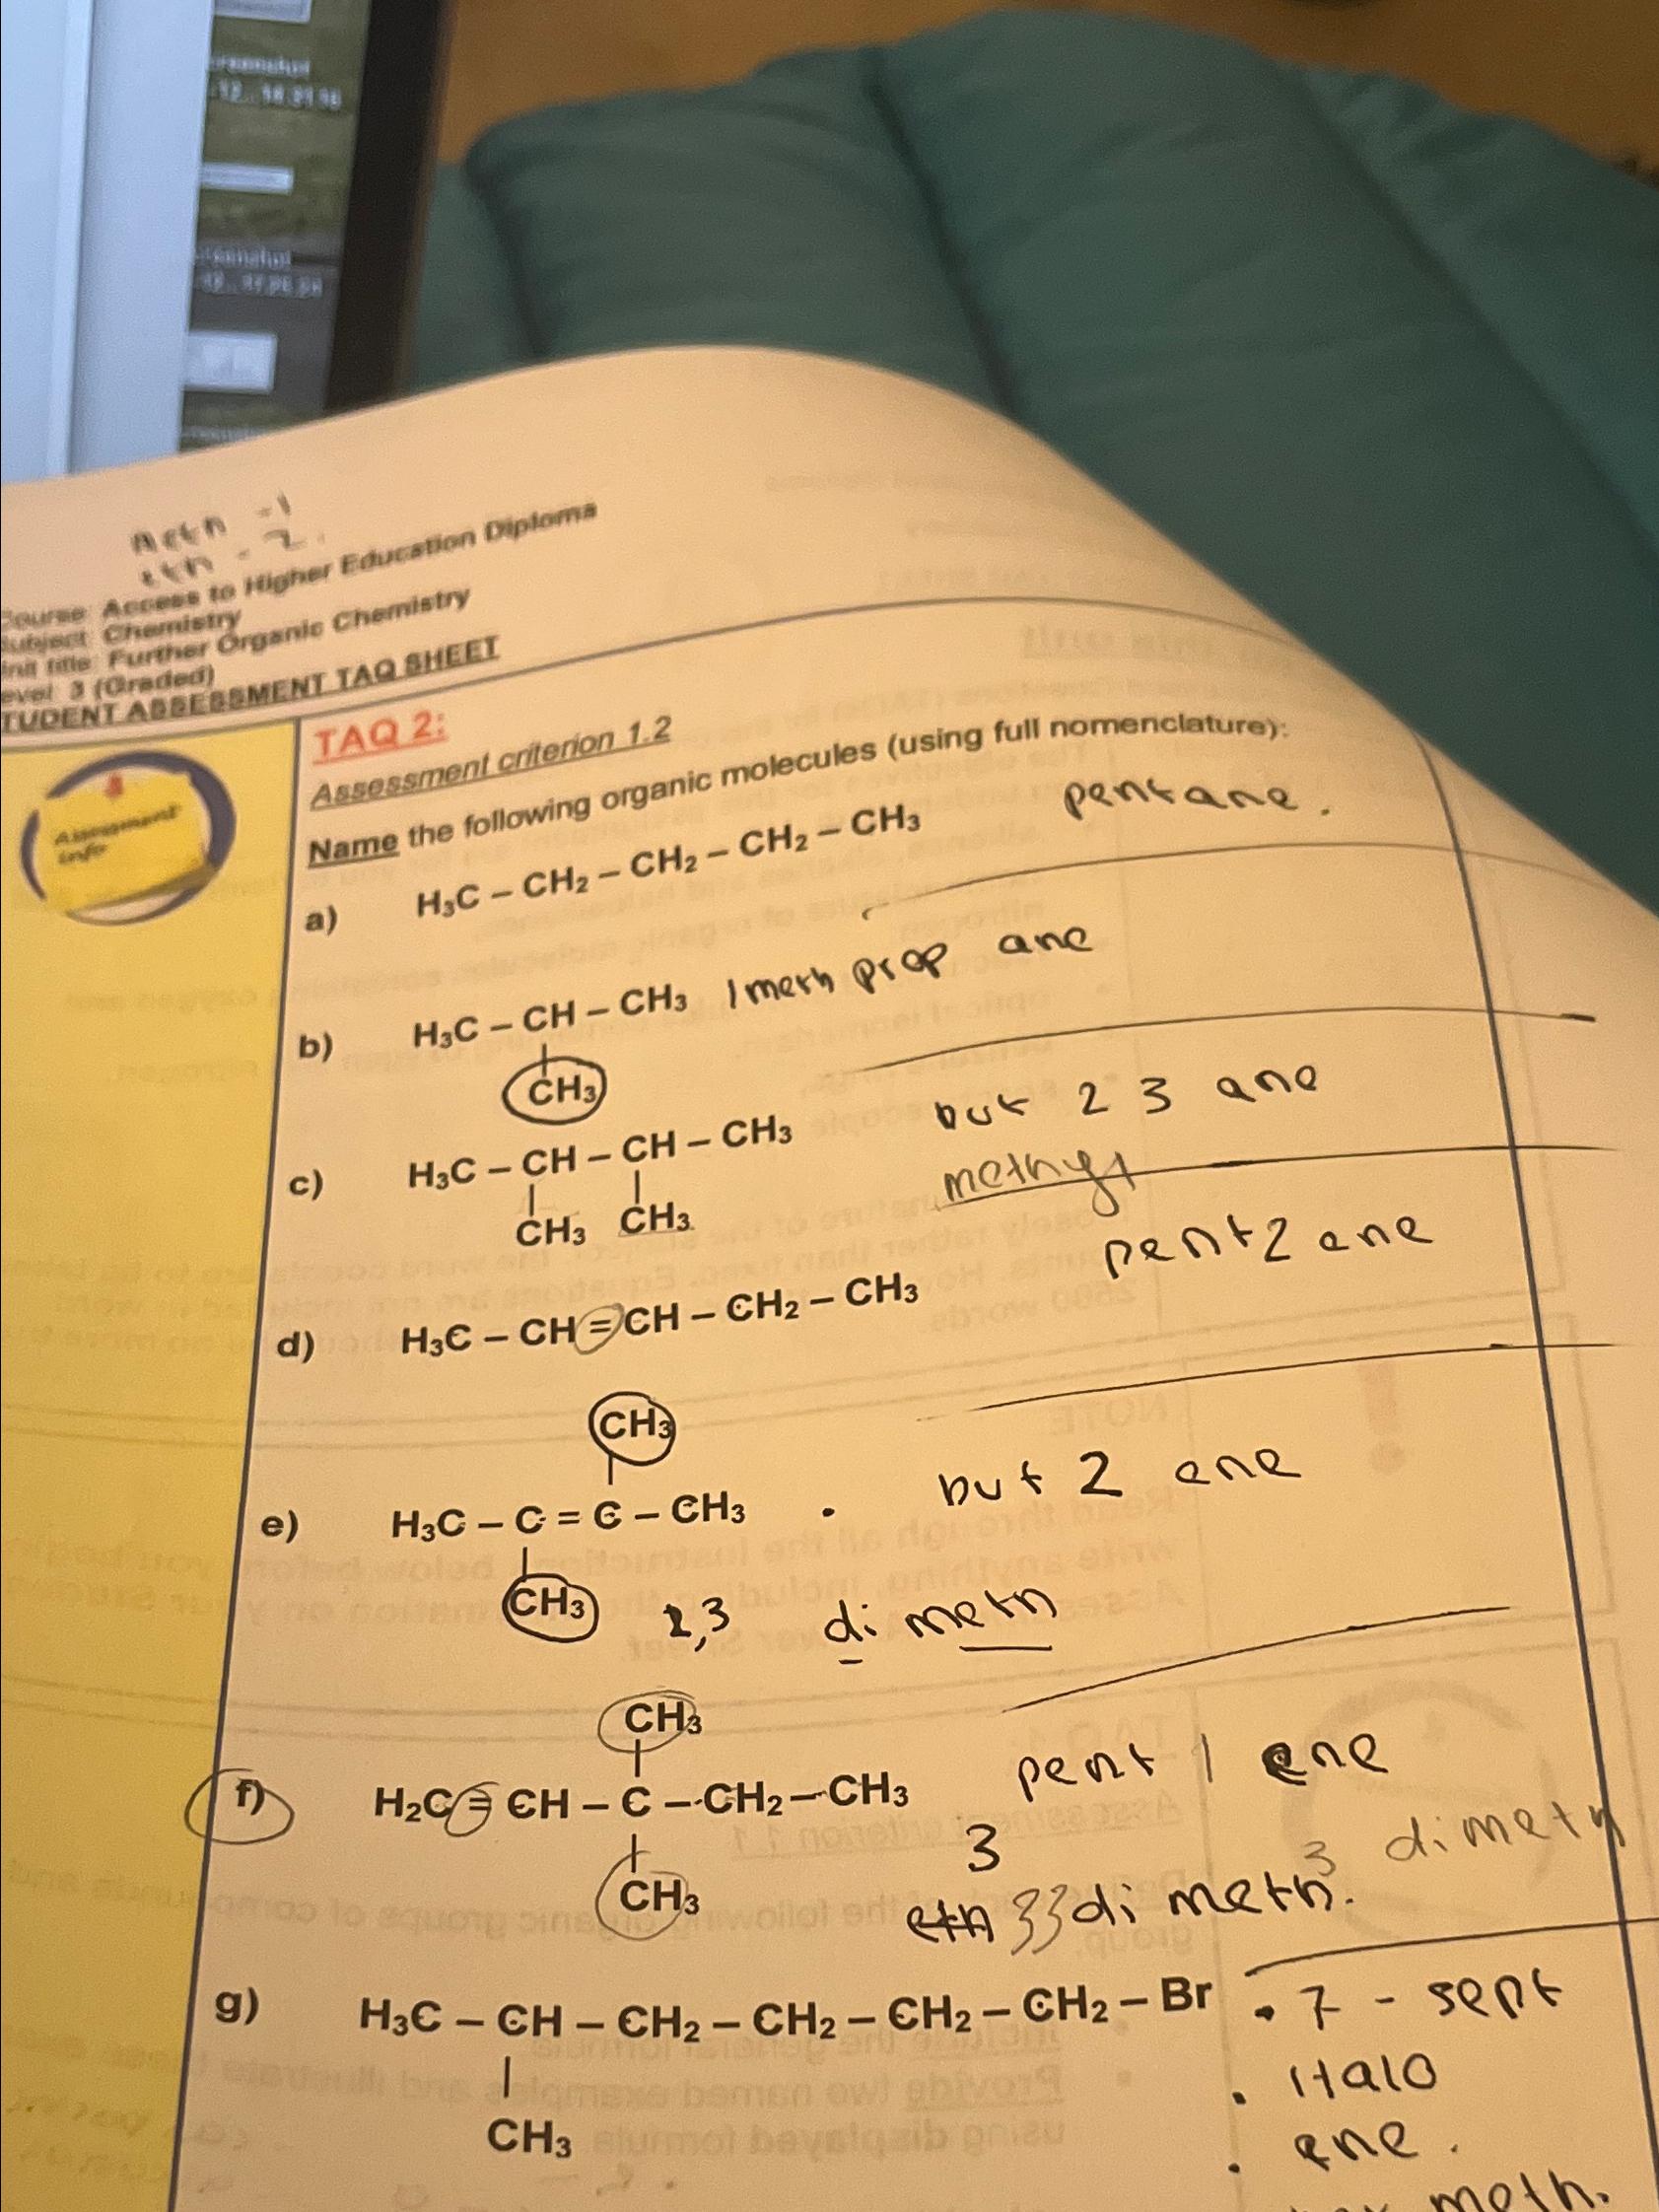 meth -1
eth - 2.
Course: Access to Higher Education Diploma
Subject: Chemistry
Unit title: Further Organic Chemistry
Level: 3 (Graded)
STUDENT ASSESSMENT TAQ SHEET
Assessment
info
TAQ 2:
Assessment criterion 1.2
Name the following organic molecules (using full nomenclature):
a) H₃C – CH₂ – CH₂ – CH₂ – CH₃ pentane.
b) H₃C – CH – CH₃ 1 meth prop ane
CH₃
c) H₃C – CH – CH – CH₃ but 2 3 ane
CH₃ CH₃ methyl
d) H₃C – CH = CH – CH₂ – CH₃ pent 2 ene
CH₃
e) H₃C – C = C – CH₃ . but 2 ene
CH₃ 2,3 di meth
CH₃
f) H₂C = CH – C – CH₂ – CH₃ pent 1 ene
3
3 dimeth
CH₃ eth 33 di meth.
g) H₃C – CH – CH₂ – CH₂ – CH₂ – CH₂ – Br • 7 - sept
• Halo
CH₃ • ane.
meth.